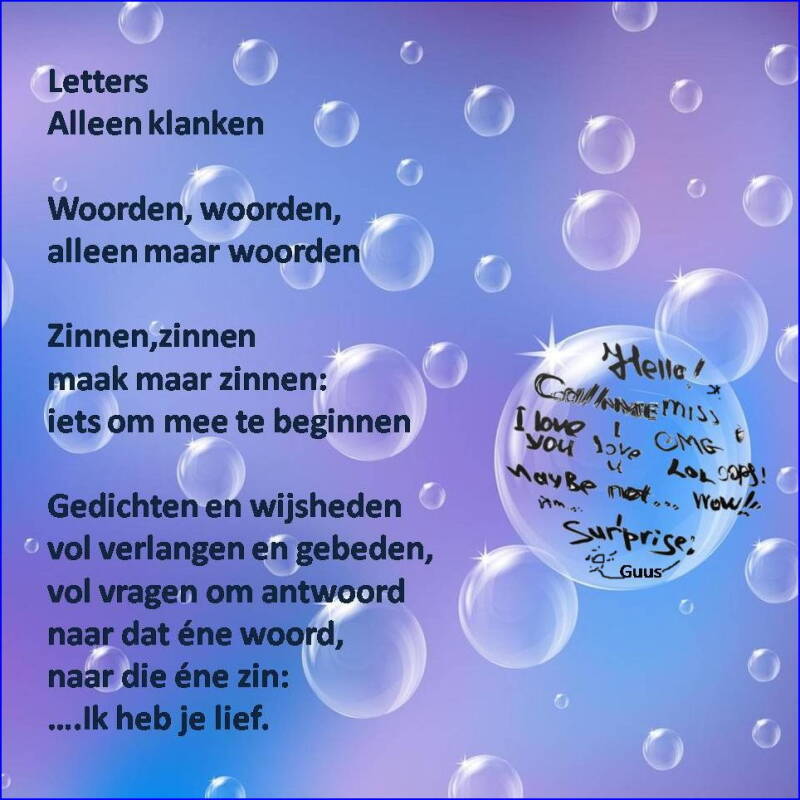 Letters
Alleen klanken
Woorden, woorden,
alleen maar woorden
Zinnen,zinnen
maak maar zinnen:
iets om mee te beginnen
Gedichten en wijsheden
vol verlangen en gebeden,
vol vragen om antwoord
naar dat éne woord,
naar die éne zin:
….Ik heb je lief.
Hello!
miss
I love I OMG
you love
u LOL oops!
maybe not... wow!!
Surprise:
Guus